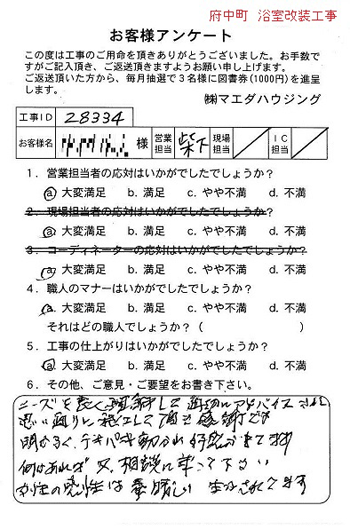 府中町 浴室改装工事
お客様アンケート
この度は工事のご用命を頂きありがとうございました。お手数で
すがご記入頂き、ご返送頂きますようお願い申し上げます。
ご返送頂いた方から、毎月抽選で3名様に図書券(1000円)を進呈
します。
㈱マエダハウジング
工事ID 28334
お客様名 様 営業担当 柴下 現場担当 IC担当
1. 営業担当者の応対はいかがでしたでしょうか?
a. 大変満足 b. 満足 c. やや不満 d. 不満
2. 現場担当者の応対はいかがでしたでしょうか?
a. 大変満足 b. 満足 c. やや不満 d. 不満
3. コーディネーターの応対はいかがでしたでしょうか?
a. 大変満足 b. 満足 c. やや不満 d. 不満
4. 職人のマナーはいかがでしたでしょうか?
a. 大変満足 b. 満足 c. やや不満 d. 不満
それはどの職人でしょうか?( )
5. 工事の仕上がりはいかがでしたでしょうか?
a. 大変満足 b. 満足 c. やや不満 d. 不満
6. その他、ご意見・ご要望をお書き下さい。
ニーズを良く理解して適切にアドバイスされ
思い通りに
明るく、テキパキ動かれ
何かあれば又、相談に
女性の感性は素晴しい